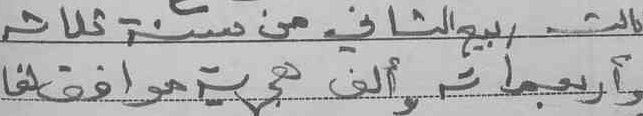 ثالث ربيع الثاني من سنة ثلاث
وأربعمائة وألف هجرية موافقا